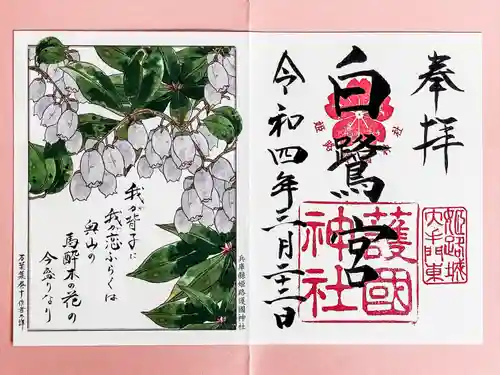 奉拝
姫路城
大手門東
白鷺宮
護國
神社
令和四年三月二十二日
兵庫県姫路護國神社
我が背子に
我が恋ふらくは
奥山の
馬酔木の花の
今盛りなり
万葉集巻十作者不詳